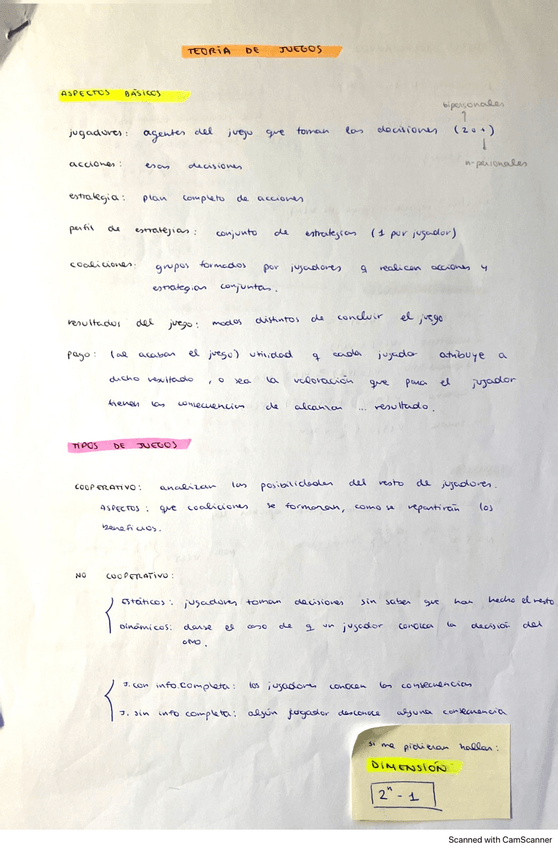 TEORÍA DE JUEGOS
ASPECTOS BÁSICOS
bipersonales
jugadores: agentes del juego que toman las decisiones (2 o +)
n-personales
acciones: esas decisiones
estrategia: plan completo de acciones
perfil de estrategias: conjunto de estrategias (1 por jugador)
coaliciones: grupos formados por jugadores q realicen acciones y
estrategias conjuntas.
resultados del juego: modos distintos de concluir el juego
pago: (al acabar el juego) utilidad q cada jugador atribuye a
dicho resultado, o sea la valoración que para el jugador
tienen las consecuencias de alcanzar ... resultado.
TIPOS DE JUEGOS
COOPERATIVO: analizan las posibilidades del resto de jugadores.
ASPECTOS: que coaliciones se formarán, como se repartirán los
beneficios.
NO COOPERATIVO:
Estáticos: jugadores toman decisiones sin saber que han hecho el resto
Dinámicos: darse el caso de q un jugador conozca la decisión del
otro.
J. con info. completa: los jugadores conocen las consecuencias
J. sin info completa: algún jugador desconoce alguna consecuencia
si me pidieran hallar:
DIMENSIÓN
2ⁿ - 1
Scanned with CamScanner